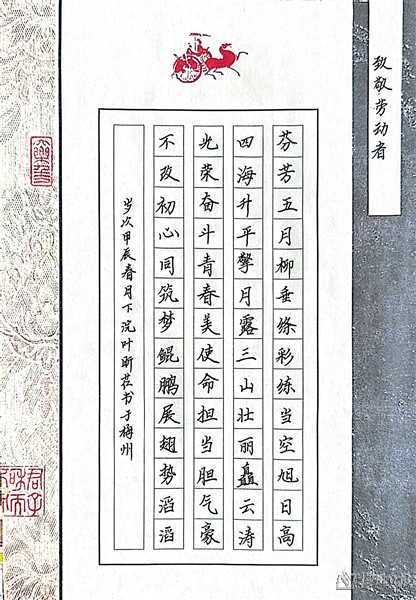 致敬劳动者
芬芳五月柳垂绦彩练当空旭日高
四海升平擎月露三山壮丽矗云涛
光荣奋斗青春美使命担当胆气豪
不改初心同筑梦鲲鹏展翅势滔滔
岁次甲辰春月下浣叶昕书于梅州
君子